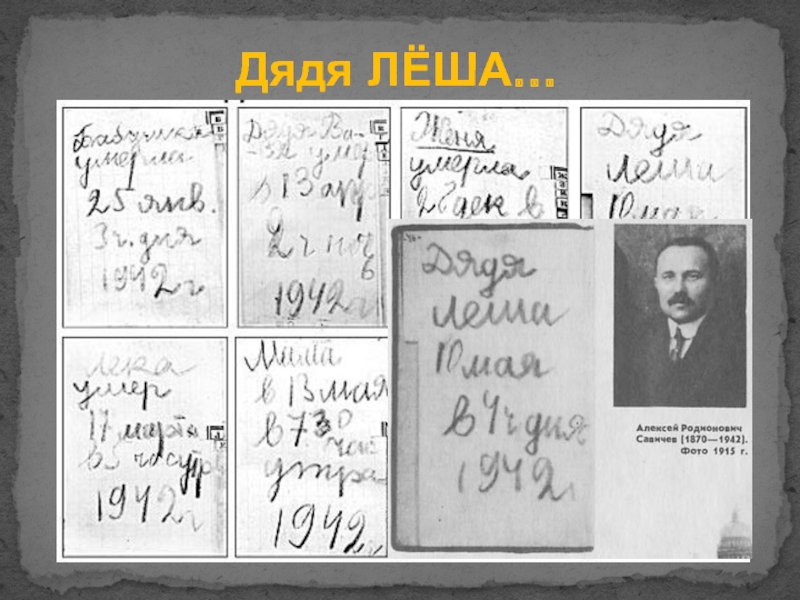 Дядя ЛЁША...
Бабушка
умерла
25 янв.
3ч. дня
1942 г
Дядя Ва-
-ся умер
в 13 апр
2ч ноч
1942г
Женя
умерла
28 дек в
Дядя
Леша
10 мая
Дядя
Леша
10 мая
в 4ч дня
1942г
Лека
умер
17 марта
в 5 часутр
1942г
Мама
в 13 мая
в 7 30
час
утра
1942г
Алексей Родионович
Савичев (1870—1942).
Фото 1915 г.